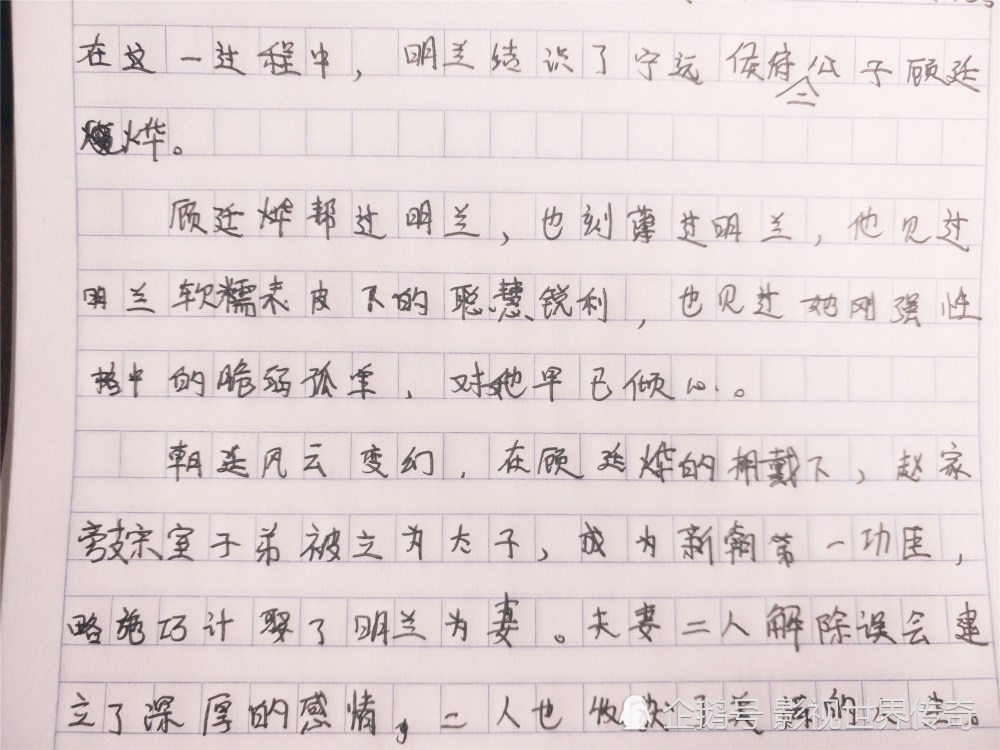 在这一过程中，明兰结识了宁远侯府二公子顾廷
烨。
顾廷烨帮过明兰，也刻薄过明兰，他见过
明兰软糯表皮下的聪慧锐利，也见过她刚强性
格中的脆弱孤单，对她早已倾心。
朝廷风云变幻，在顾廷烨的拥戴下，赵家
旁支宗室子弟被立为太子，成为新朝第一功臣，
略施巧计娶了明兰为妻。夫妻二人解除误会建
立了深厚的感情，二人也收
的人生。
企鹅号 影视世界传奇